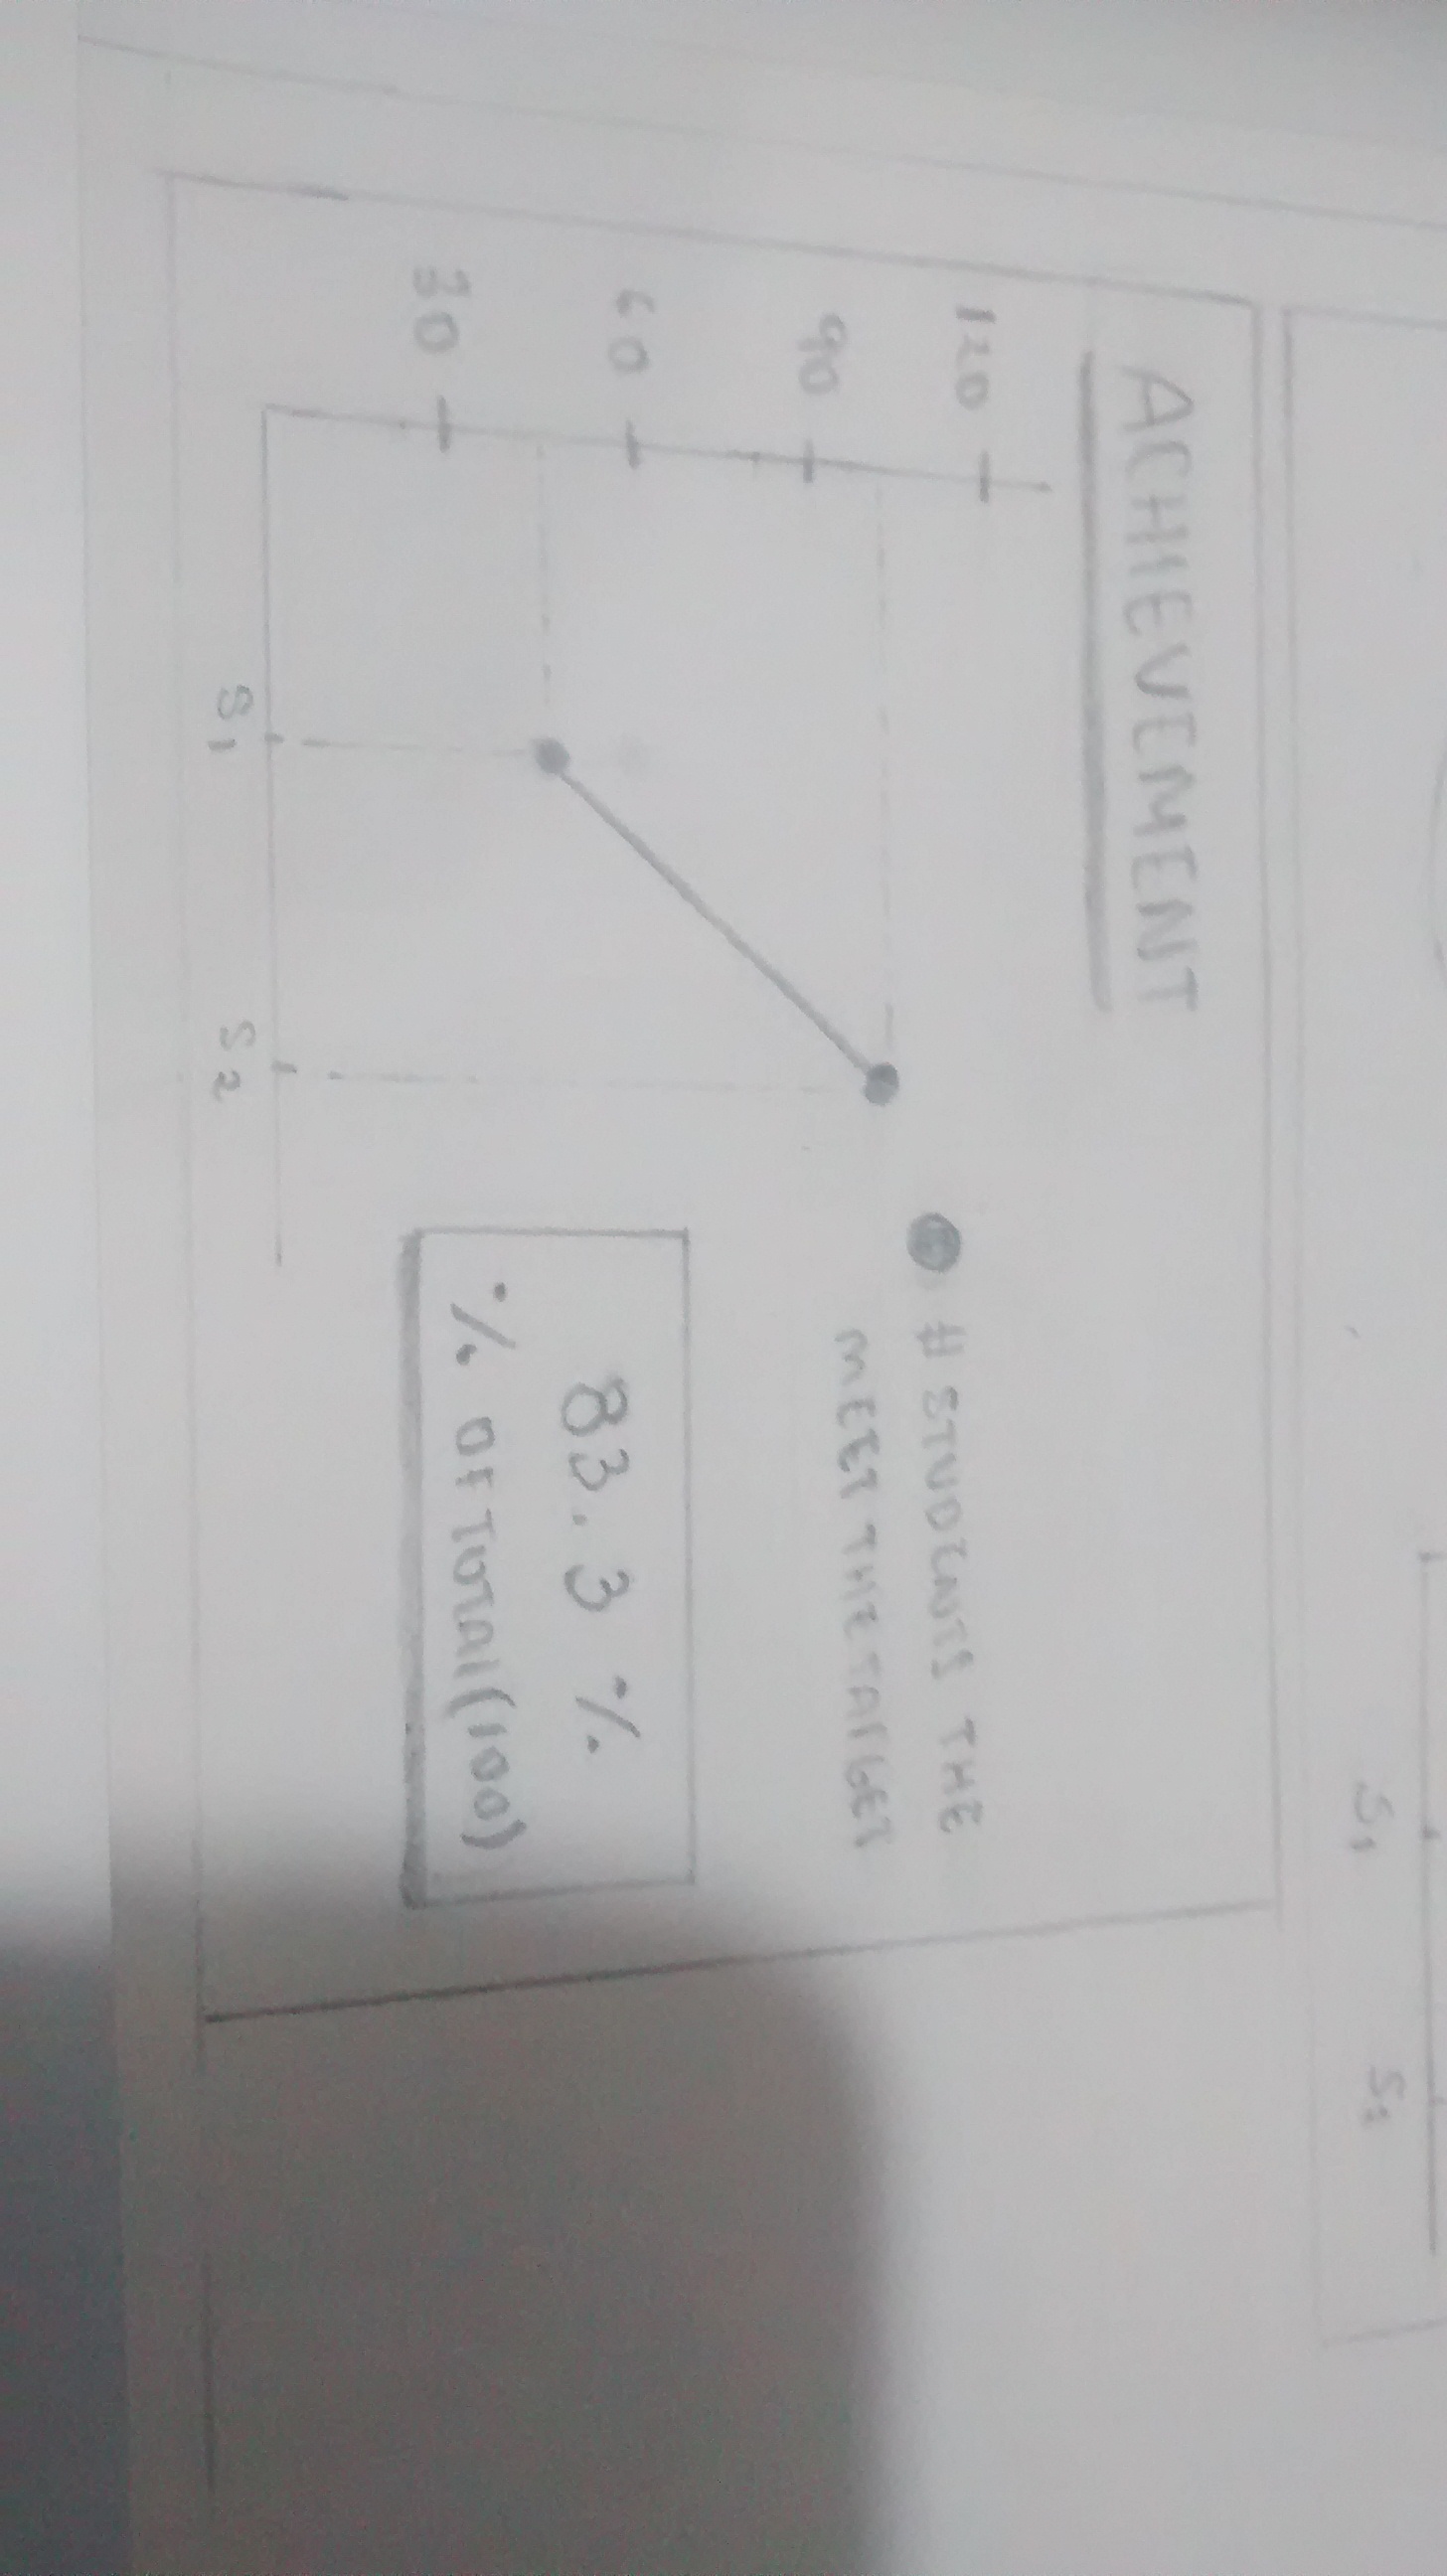 ACHIEVEMENT
120
90
60
30
S1
S2
# STUDENTS THE
MEET THE TARGET
83.3 %
% OF TOTAL (100)
S1
S2